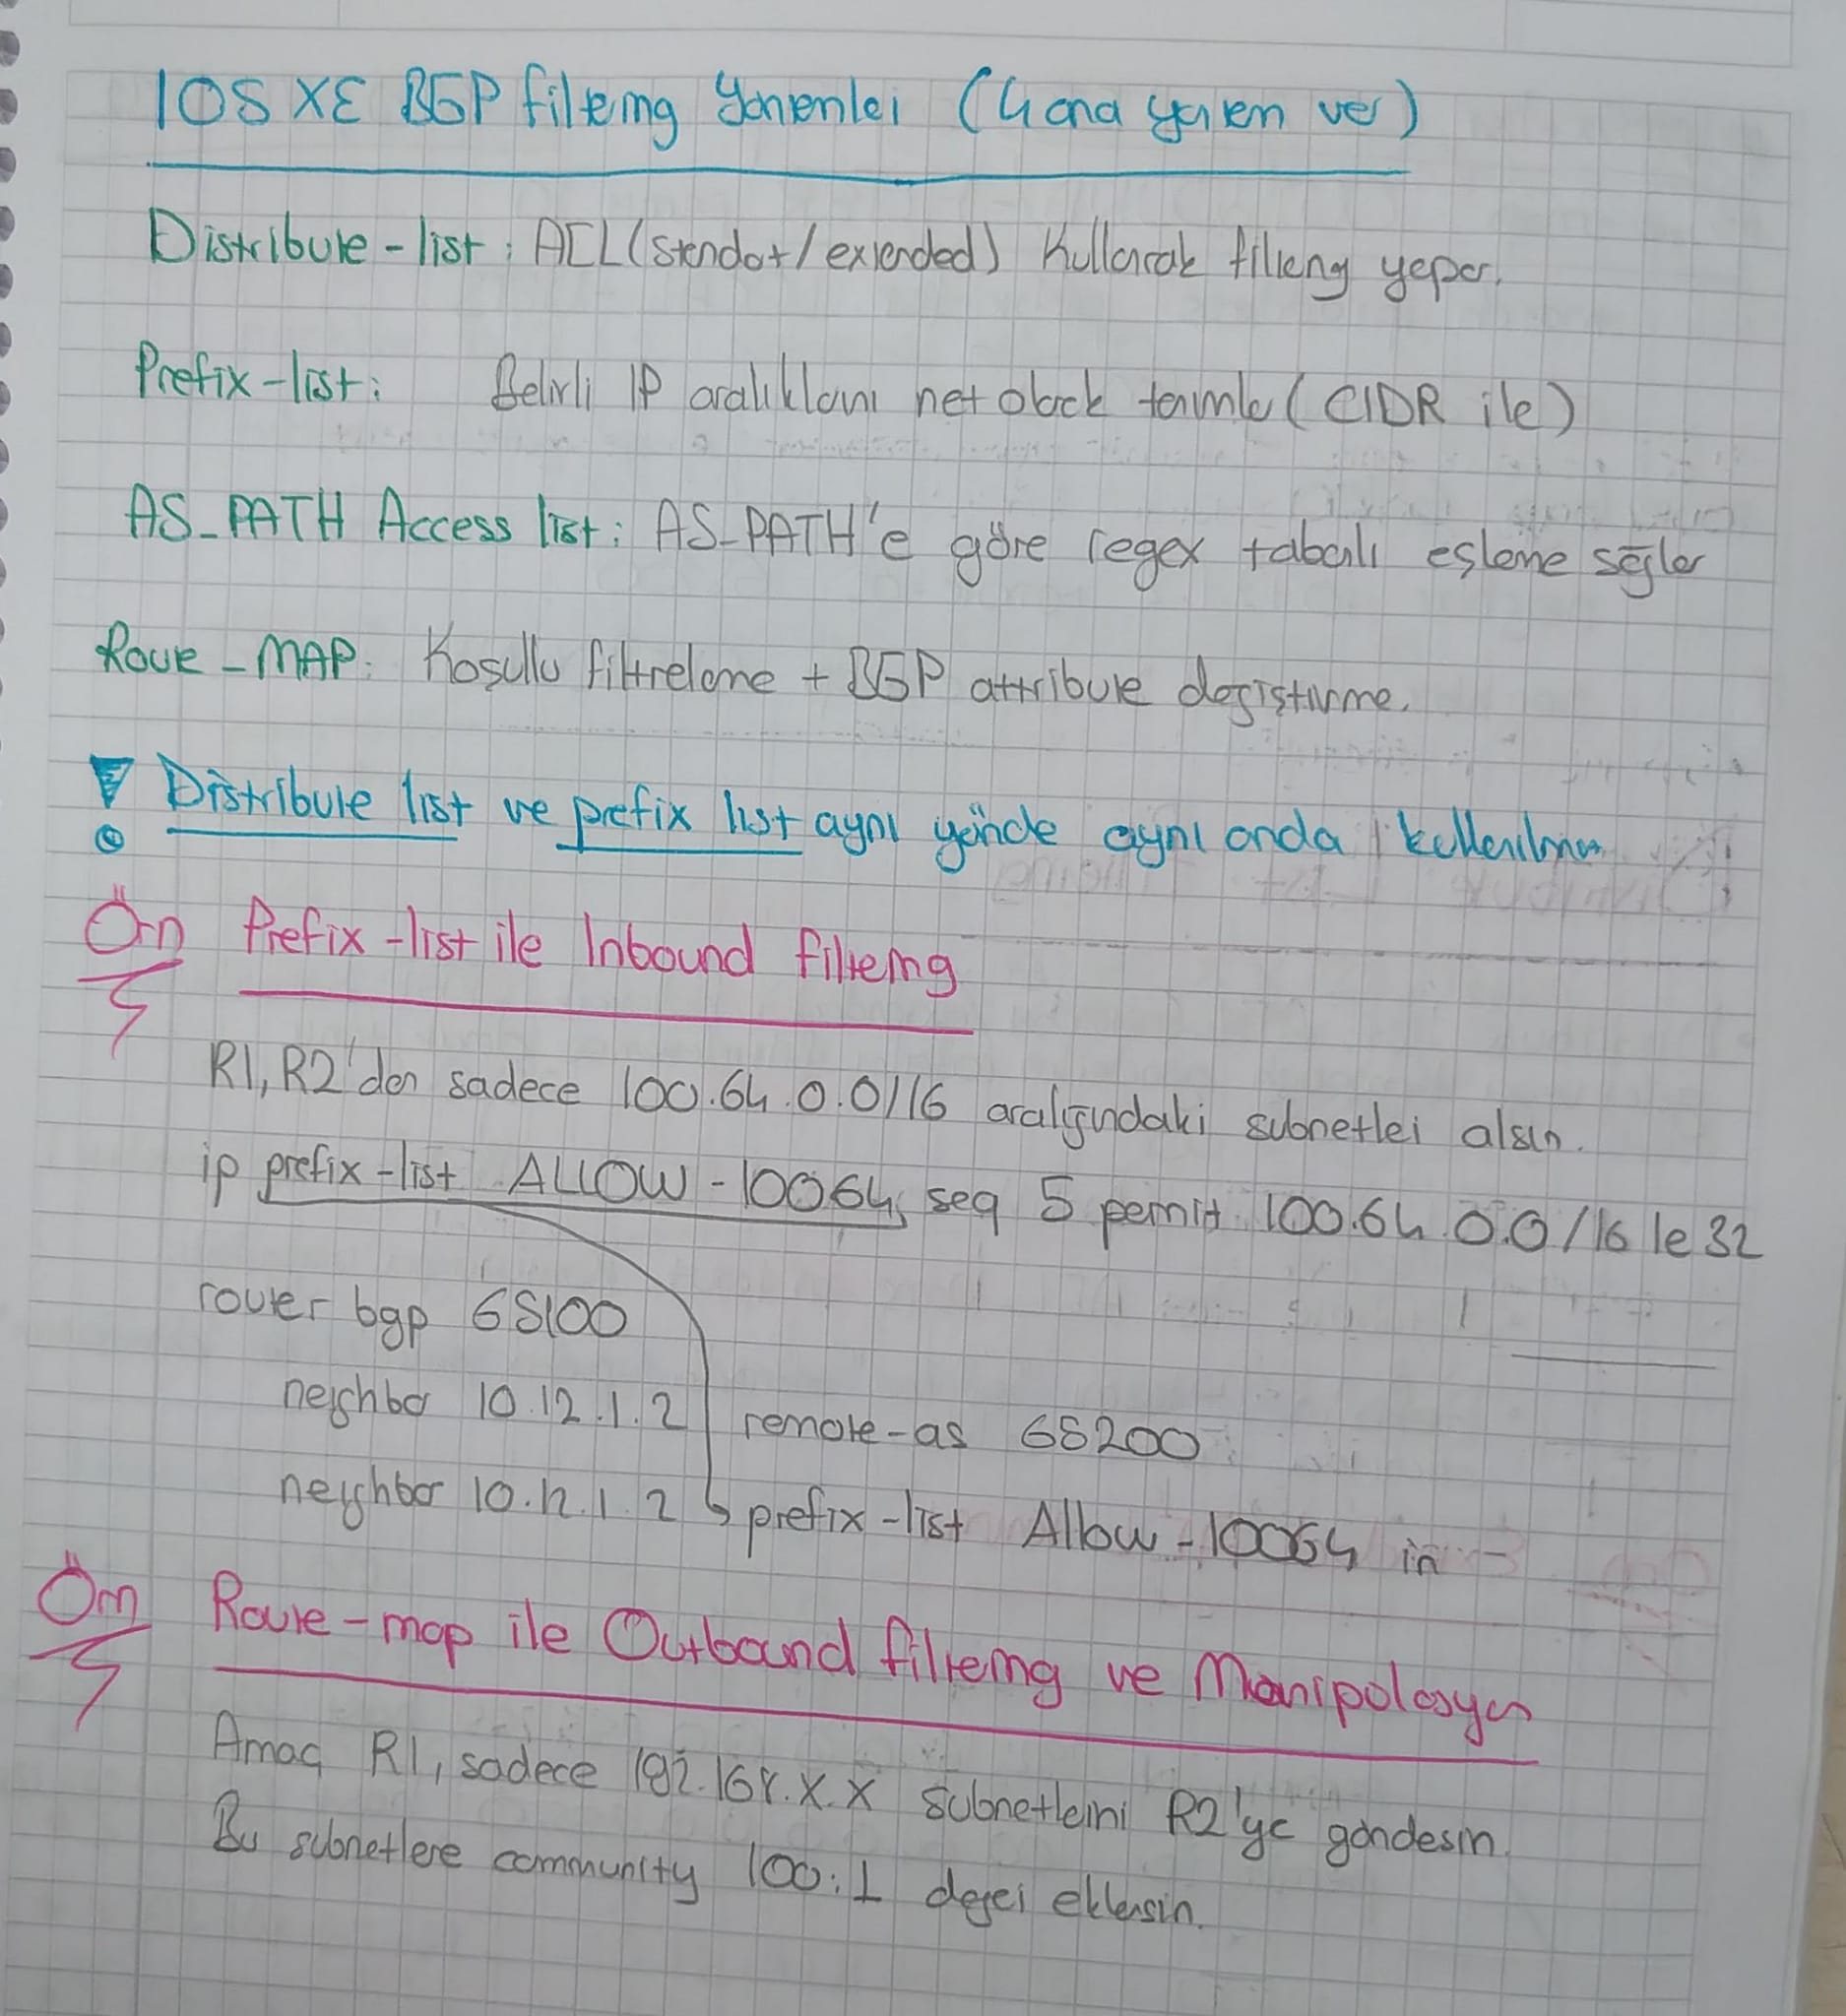 IOS XE BGP filtering Yöntemleri (4 ana yöntem var)
Distribute-list: ACL(standart/extended) Kullanarak filtering yapar.
Prefix-list: Belirli IP aralıklarını net olarak tanımlar (CIDR ile)
AS_PATH Access list: AS_PATH'e göre regex tabanlı eşleme sağlar
Route-MAP: Koşullu filtreleme + BGP attribute değiştirme.
! Distribute list ve prefix list aynı yönde aynı anda kullanılmaz
Örn Prefix-list ile Inbound filtering
R1, R2'den sadece 100.64.0.0/16 aralığındaki subnetleri alsın.
ip prefix-list ALLOW-10064 seq 5 permit 100.64.0.0/16 le 32
router bgp 65100
neighbor 10.12.1.2 remote-as 65200
neighbor 10.12.1.2 prefix-list Allow-10064 in
Örn Route-map ile Outbound filtering ve Manipolasyon
Amaç R1, sadece 192.168.X.X Subnetlerini R2'ye göndersin.
Bu subnetlere community 100:1 değeri eklensin.